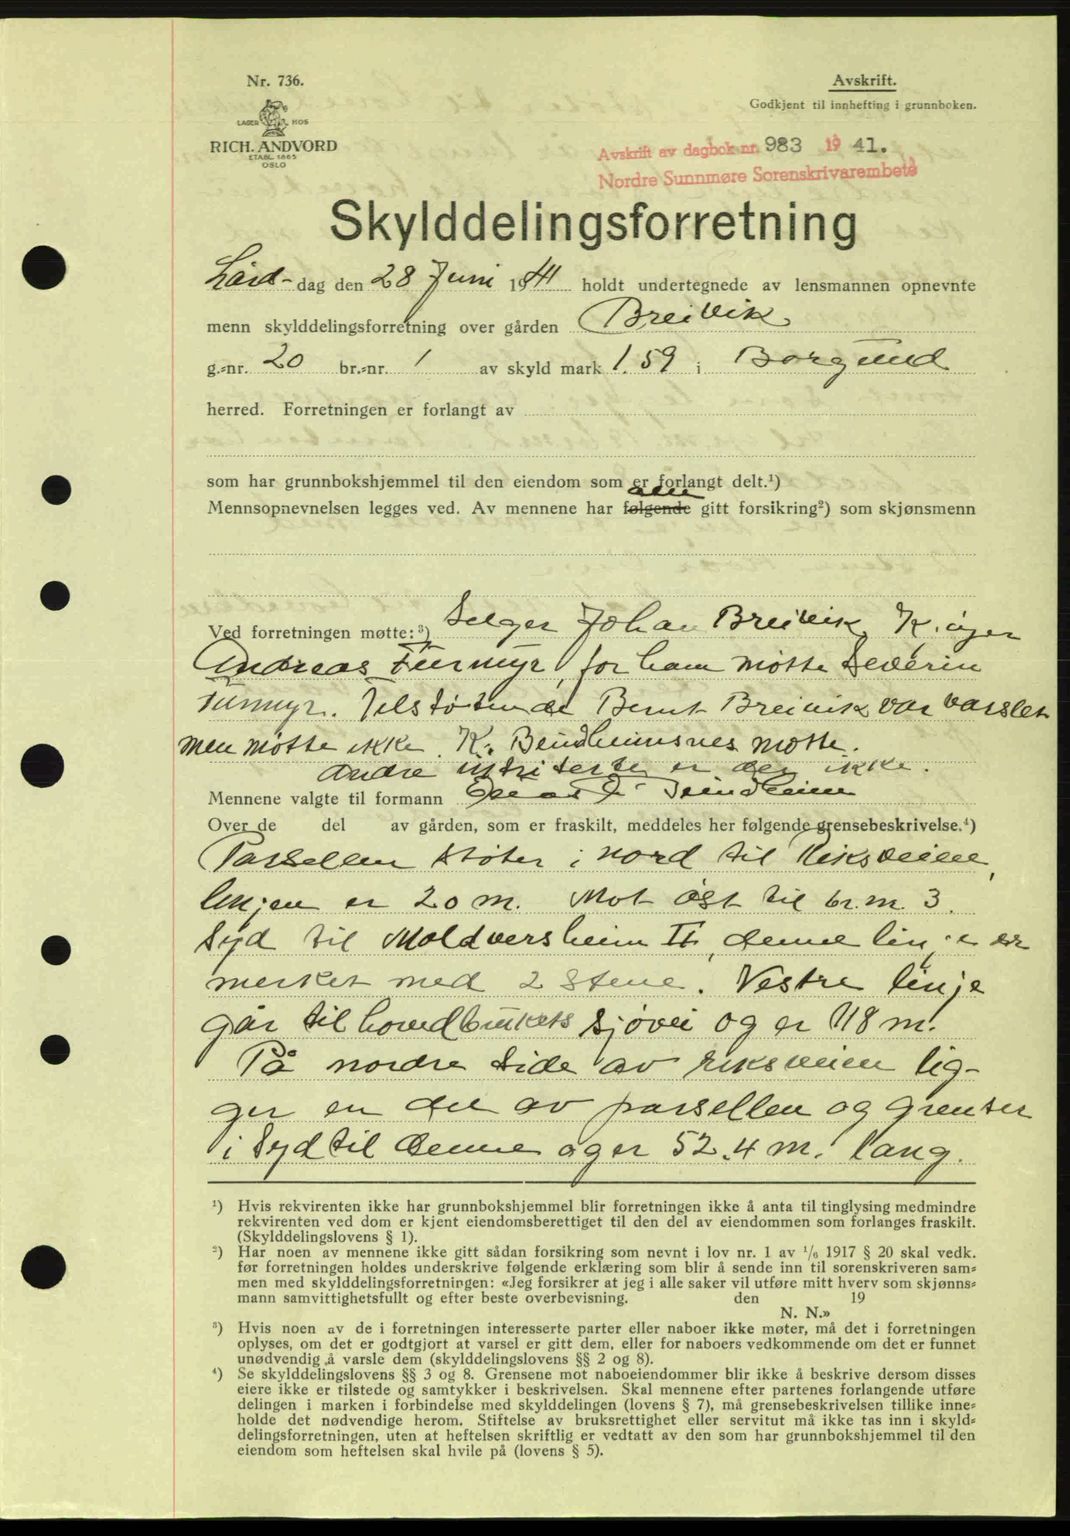 Nr. 736.
LAGER HOS
RICH. ANDVORD
ETABL. 1865
OSLO
Avskrift.
Godkjent til innhefting i grunnboken.
Avskrift av dagbok nr. 983 1941.
Nordre Sunnmøre Sorenskrivarembete
Skylddelingsforretning
Lørdag den 28 Juni 1941 holdt undertegnede av lensmannen opnevnte
menn skylddelingsforretning over gården Breivik
g.-nr. 20 br.-nr. 1 av skyld mark 1.59 i Borgund
herred. Forretningen er forlangt av
som har grunnbokshjemmel til den eiendom som er forlangt delt.¹)
Mennsopnevnelsen legges ved. Av mennene har følgende alle gitt forsikring²) som skjønsmenn
Ved forretningen møtte:³) Selger Johan Breivik, Kjøper
Andreas Furmyr, for ham møtte Severin
Furmyr. Tilstøtende Bernt Breivik var varslet
men møtte ikke. K. møtte.
Andre er der ikke.
Mennene valgte til formann
Over de del av gården, som er fraskilt, meddeles her følgende grensebeskrivelse.⁴)
Parsellen støter i nord til Riksveien,
linjen er 20 m. Mot øst til br. nr. 3.
Syd til Moldversheim II, denne linje er
merket med 2 stene. Vestre linje
går til hovedbrukets sjøvei og er 118 m.
På nordre side av riksveien lig-
ger en del av parsellen og grenser
i Syd til denne og er 52.4 m. lang.
¹) Hvis rekvirenten ikke har grunnbokshjemmel blir forretningen ikke å anta til tinglysing medmindre
rekvirenten ved dom er kjent eiendomsberettiget til den del av eiendommen som forlanges fraskilt.
(Skylddelingslovens § 1).
²) Har noen av mennene ikke gitt sådan forsikring som nevnt i lov nr. 1 av 1/6 1917 § 20 skal vedk.
før forretningen holdes underskrive følgende erklæring som blir å sende inn til sorenskriveren sam-
men med skylddelingsforretningen: «Jeg forsikrer at jeg i alle saker vil utføre mitt hverv som skjønns-
mann samvittighetsfullt og efter beste overbevisning. den 19
N. N.»
³) Hvis noen av de i forretningen interesserte parter eller naboer ikke møter, må det i forretningen
oplyses, om det er godtgjort at varsel er gitt dem, eller for naboers vedkommende om det er funnet
unødvendig å varsle dem (skylddelingslovens §§ 2 og 8).
⁴) Se skylddelingslovens §§ 3 og 8. Grensene mot naboeiendommer blir ikke å beskrive dersom disses
eiere ikke er tilstede og samtykker i beskrivelsen. Skal mennene efter partenes forlangende utføre
delingen i marken i forbindelse med skylddelingen (lovens § 7), må grensebeskrivelsen tillike inne-
holde det nødvendige herom. Stiftelse av bruksrettighet eller servitut må ikke tas inn i skyld-
delingsforretningen, uten at heftelsen skriftlig er vedtatt av den som har grunnbokshjemmel til den
eiendom som heftelsen skal hvile på (lovens § 5).